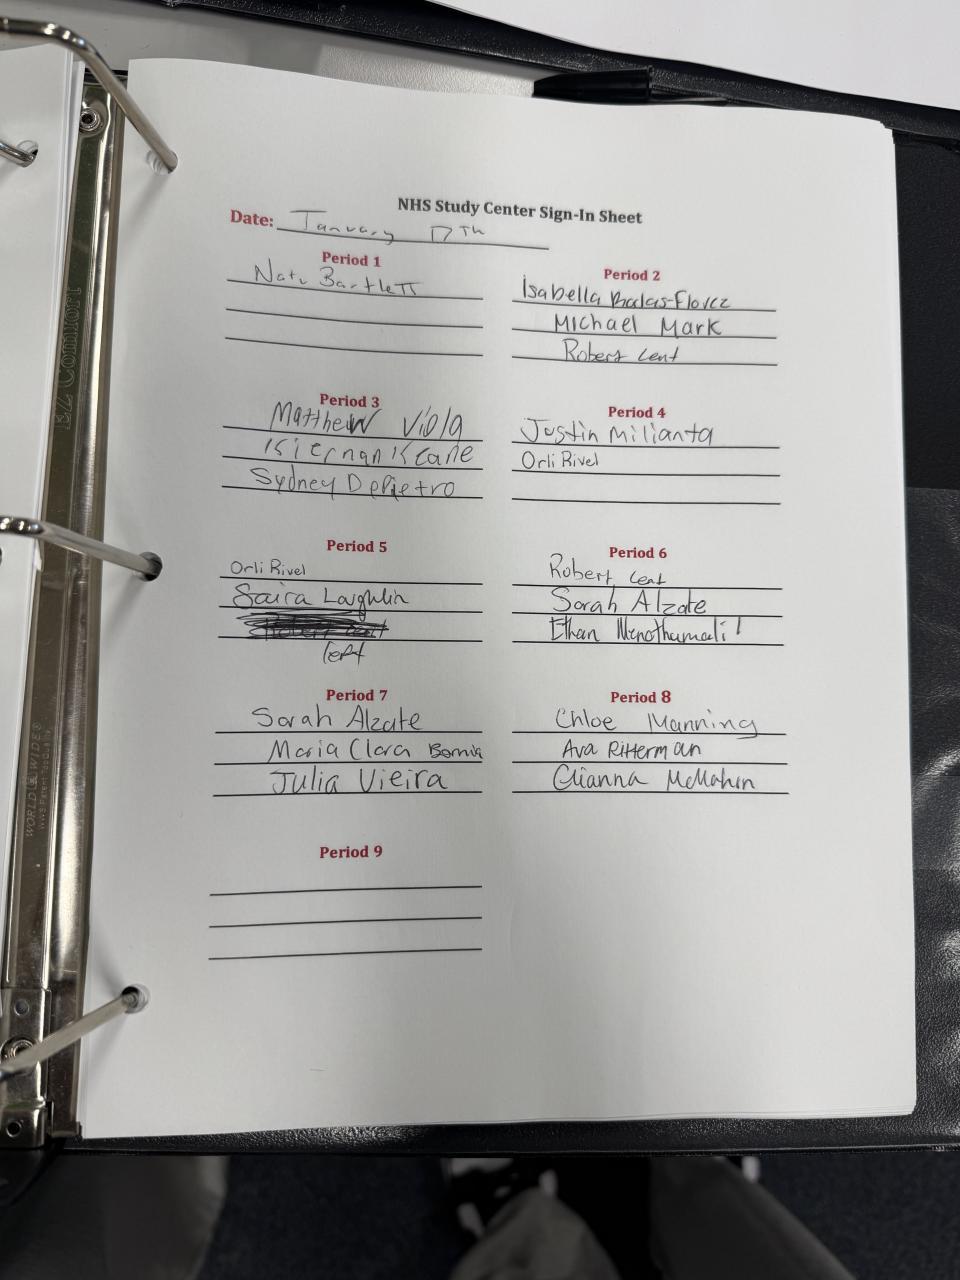 NHS Study Center Sign-In Sheet
Date: January 17th
Period 1
Nate Bartlett
Period 2
Isabella -Florez
Michael Mark
Robert Lent
Period 3
Matthew Viola
Kiernan Keane
Sydney DePietro
Period 4
Justin Milianta
Orli Rivel
Period 5
Orli Rivel
Saira Loughlin
left
Period 6
Robert Lent
Sarah Alzate
Ethan
Period 7
Sarah Alzate
Maria Clara
Julia Vieira
Period 8
Chloe Manning
Ava Ritterman
Gianna McMahon
Period 9
EZ Comfort
WORLD WIDE®